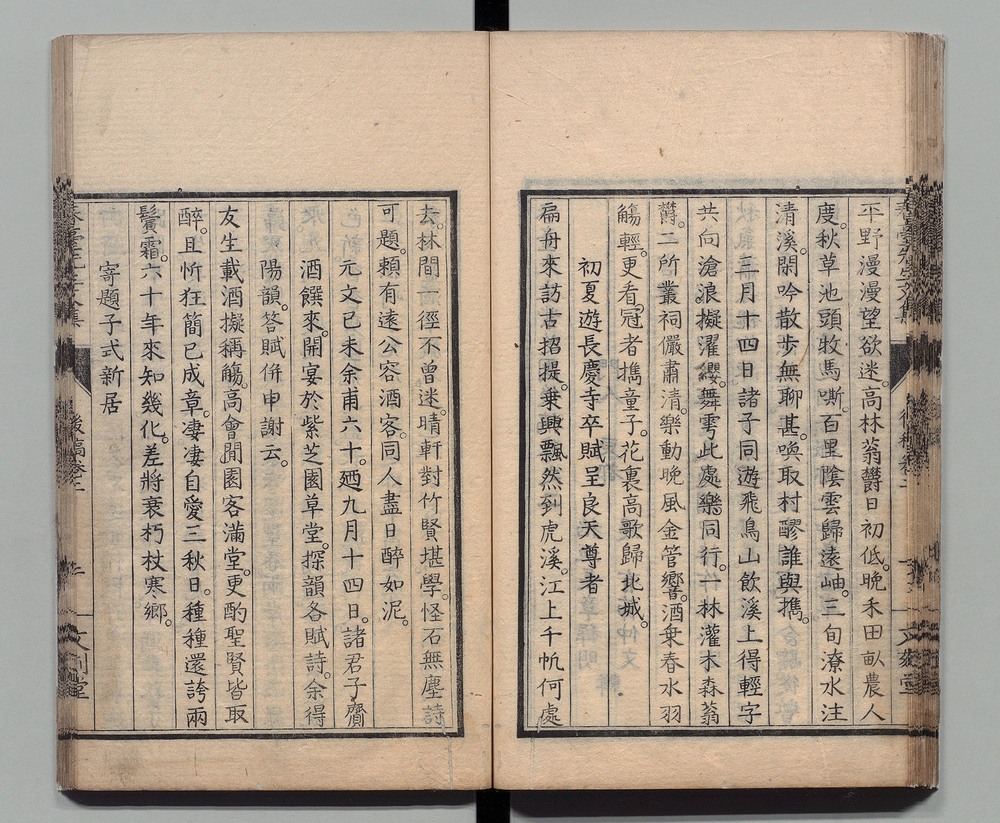 平野漫漫望欲迷。高林蓊欝日初低。晩禾田畝農人
度。秋草池頭牧馬嘶。百里陰雲歸遠岫。三旬潦水注
清溪。閑吟散歩無聊甚。喚取村醪誰與擕。
三月十四日諸子同遊飛鳥山飲溪上得輕字
共向滄浪擬濯纓。舞雩此處樂同行。一林灌木森蓊
欝。二所叢祠儼肅清。樂動晩風金管響。酒乗春水羽
觴輕。更看冠者擕童子。花裏高歌歸北城。
初夏遊長慶寺卒賦呈良天尊者
扁舟來訪古招提。乗興飄然到虎溪。江上千帆何處
去。林間一徑不曾迷。晴軒對竹賢堪學。怪石無塵詩
可題。頼有遠公容酒客。同人盡日醉如泥。
元文己未余甫六十。廼九月十四日。諸君子齎
酒饌來。開宴於紫芝園草堂。探韻各賦詩。余得
陽韻。答賦併申謝云。
友生載酒擬稱觴。高會閒園客滿堂。更酌聖賢皆取
醉。且忻狂簡已成章。凄凄自愛三秋日。種種還誇兩
鬢霜。六十年來知幾化。差將衰朽杖寒鄉。
寄題子式新居
後稿卷二